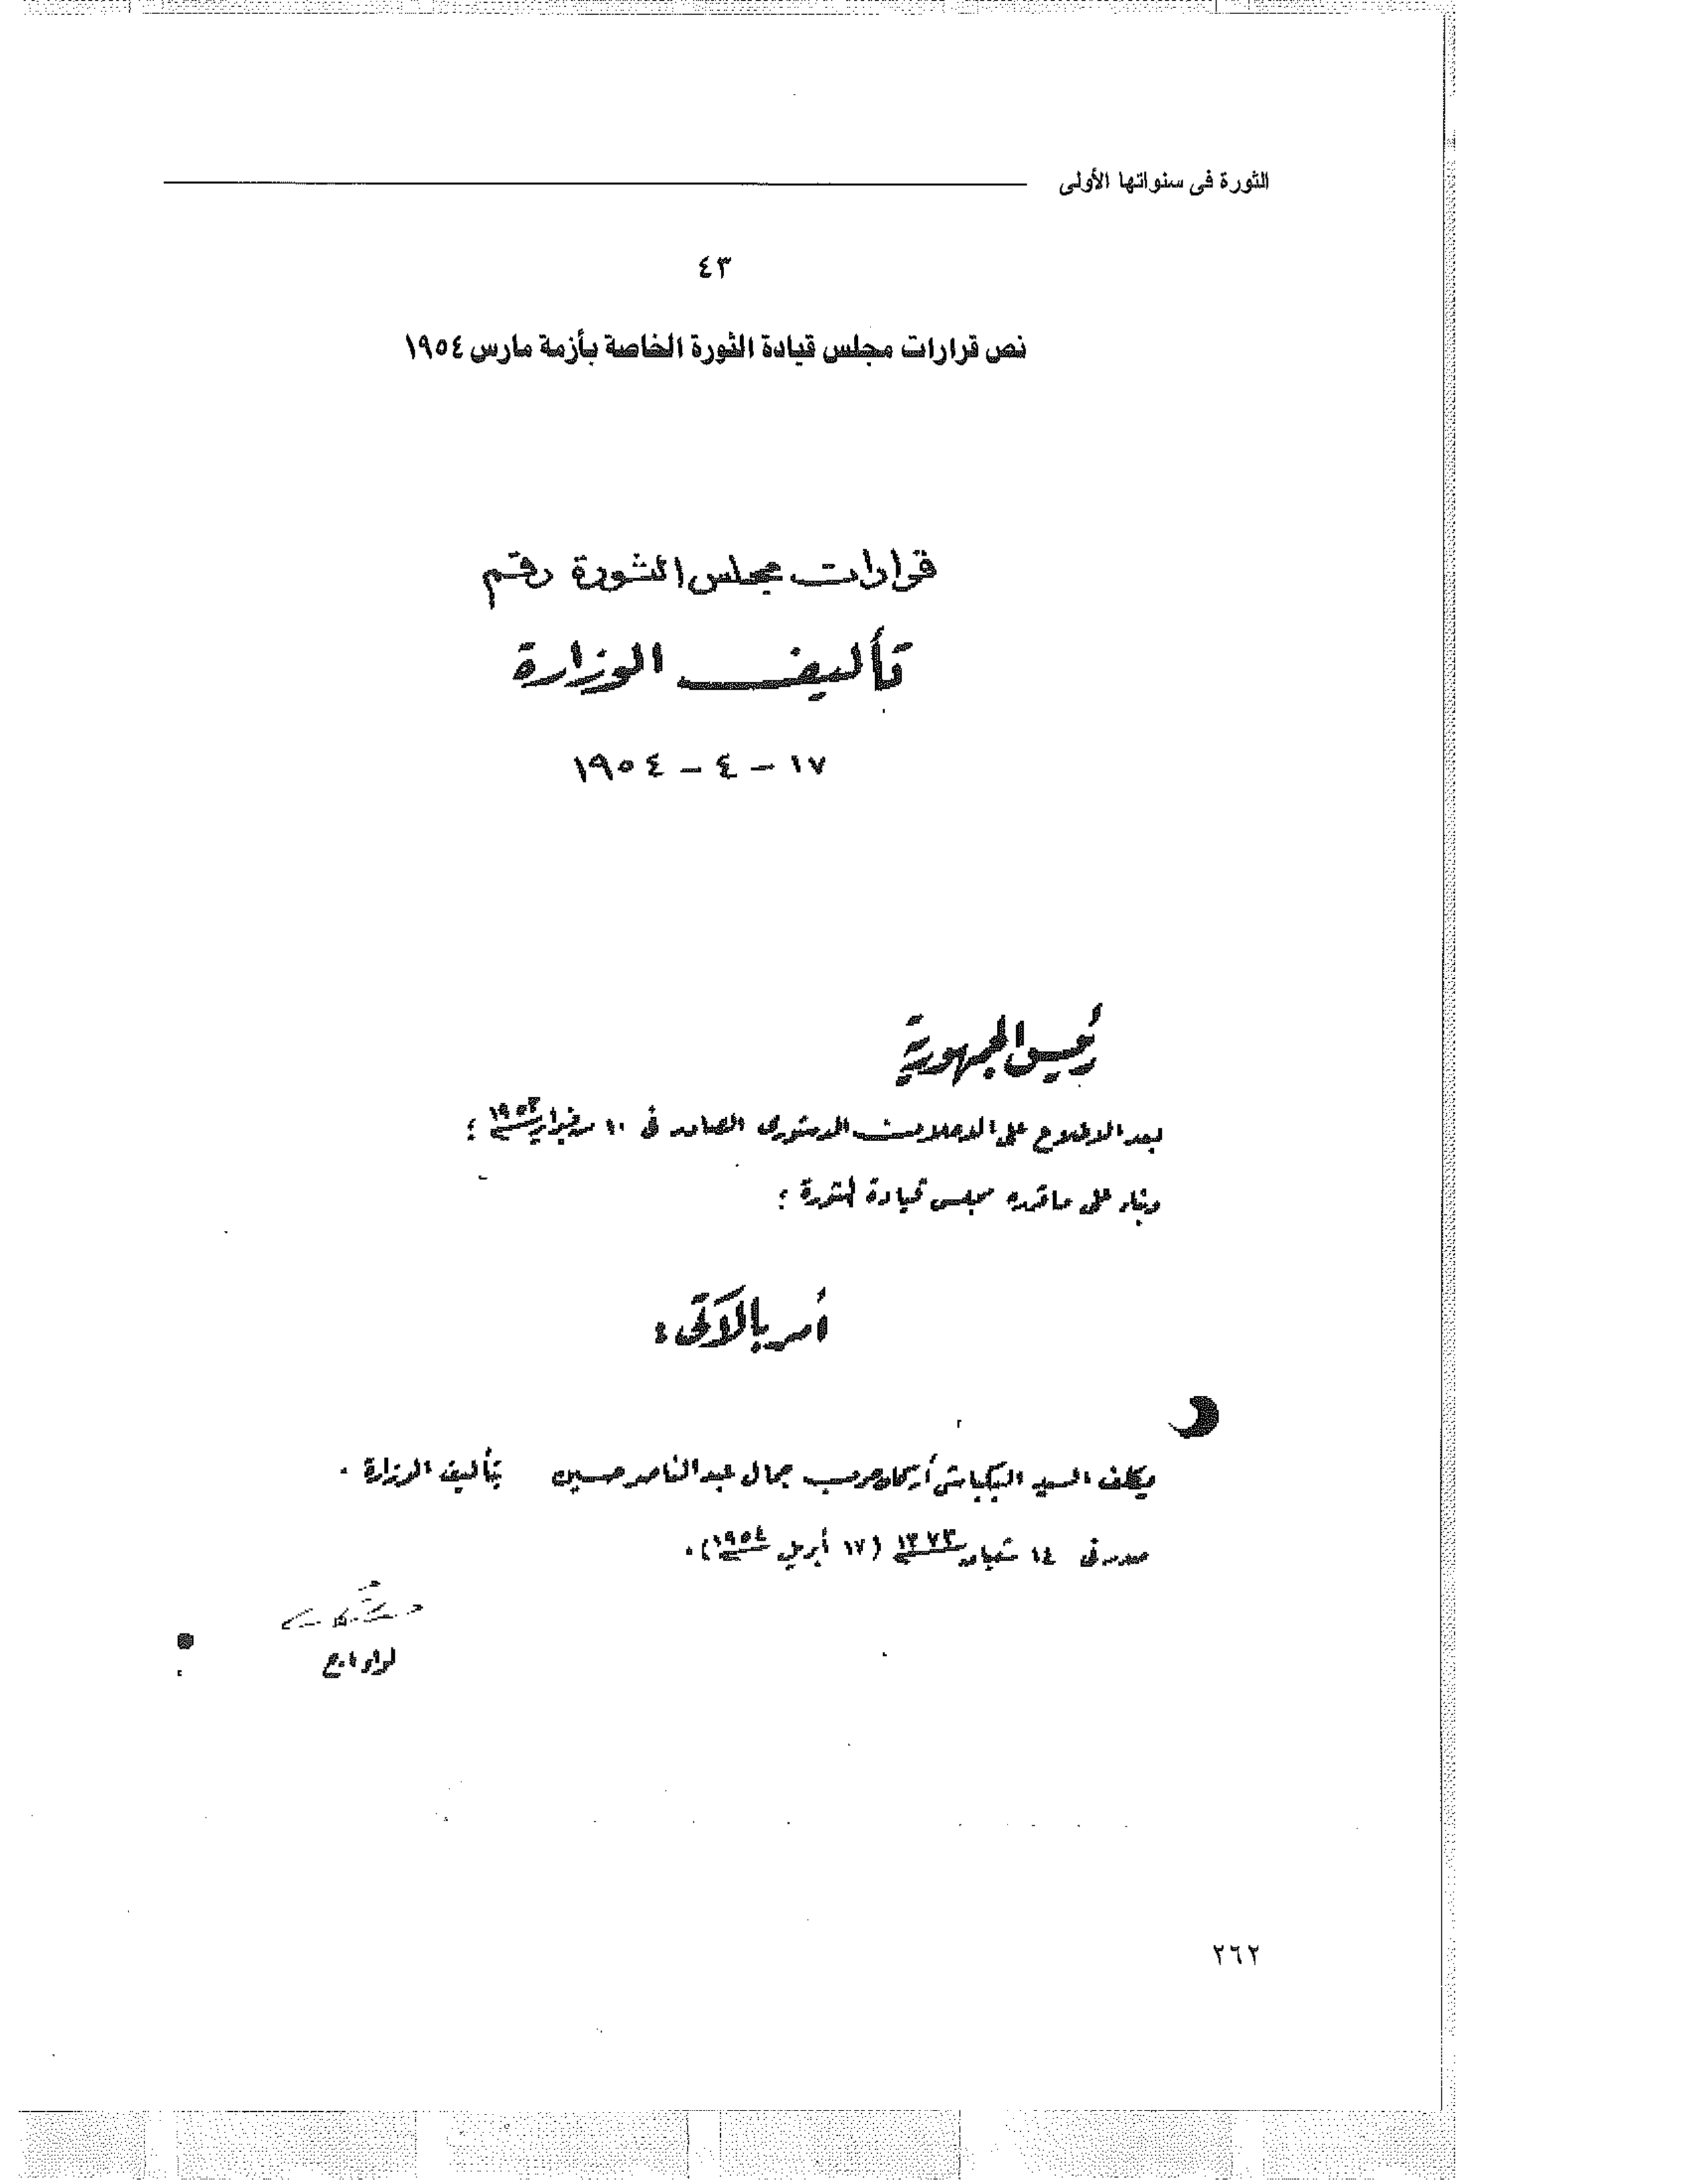 الثورة فى سنواتها الأولى
٤٣
نص قرارات مجلس قيادة الثورة الخاصة بأزمة مارس ١٩٥٤
قرارات مجلس الثورة رقم
تأليف الوزارة
١٧ - ٤ - ١٩٥٤
رئيس الجمهورية
بعد الاطلاع على الاعلان الدستورى الصادر فى ١٠ فبراير ١٩٥٣ ؛
وبناء على ما قرره مجلس قيادة الثورة ؛
أمر بالآتى :
يكلف السيد البكباشى أركان حرب جمال عبد الناصر حسين بتأليف الوزارة .
صدر فى ١٤ شعبان ١٣٧٣ (١٧ أبريل ١٩٥٤) .
لواء ا.ح
٢٦٢